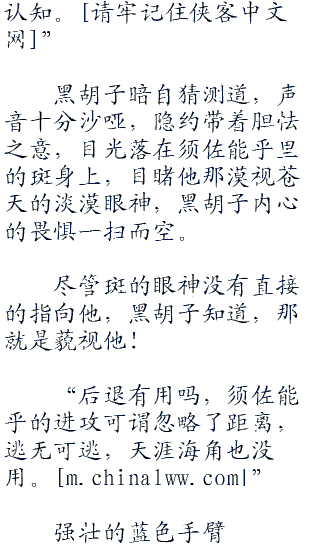 认知。[请牢记住侠客中文
网]”
黑胡子暗自猜测道，声
音十分沙哑，隐约带着胆怯
之意，目光落在须佐能乎里
的斑身上，目睹他那漠视苍
天的淡漠眼神，黑胡子内心
的畏惧一扫而空。
尽管斑的眼神没有直接
的指向他，黑胡子知道，那
就是藐视他！
“后退有用吗，须佐能
乎的进攻可谓忽略了距离，
逃无可逃，天涯海角也没
用。[m.china1ww.com|”
强壮的蓝色手臂